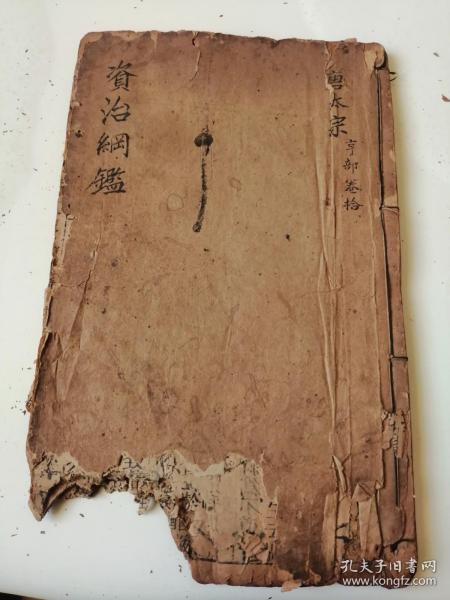 唐本宗
亨部 卷拾
資治綱鑑
孔夫子旧书网
www.kongfz.com